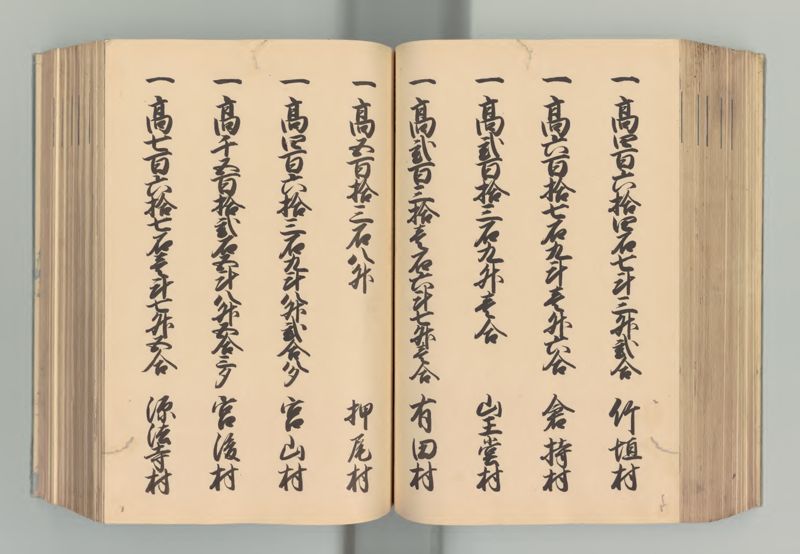 一 高四百六拾四石七斗三升弐合 竹垣村
一 高六百拾七石九斗壱升六合 倉持村
一 高弐百拾三石九升壱合 山王堂村
一 高弐百三拾壱石六斗七升壱合 有田村
一 高五百拾三石八升 押尾村
一 高四百六拾三石九斗八升弐合八夕 宮山村
一 高千五百拾弐石五斗八升五合三夕 宮後村
一 高七百六拾七石壱斗七升五合 源法寺村